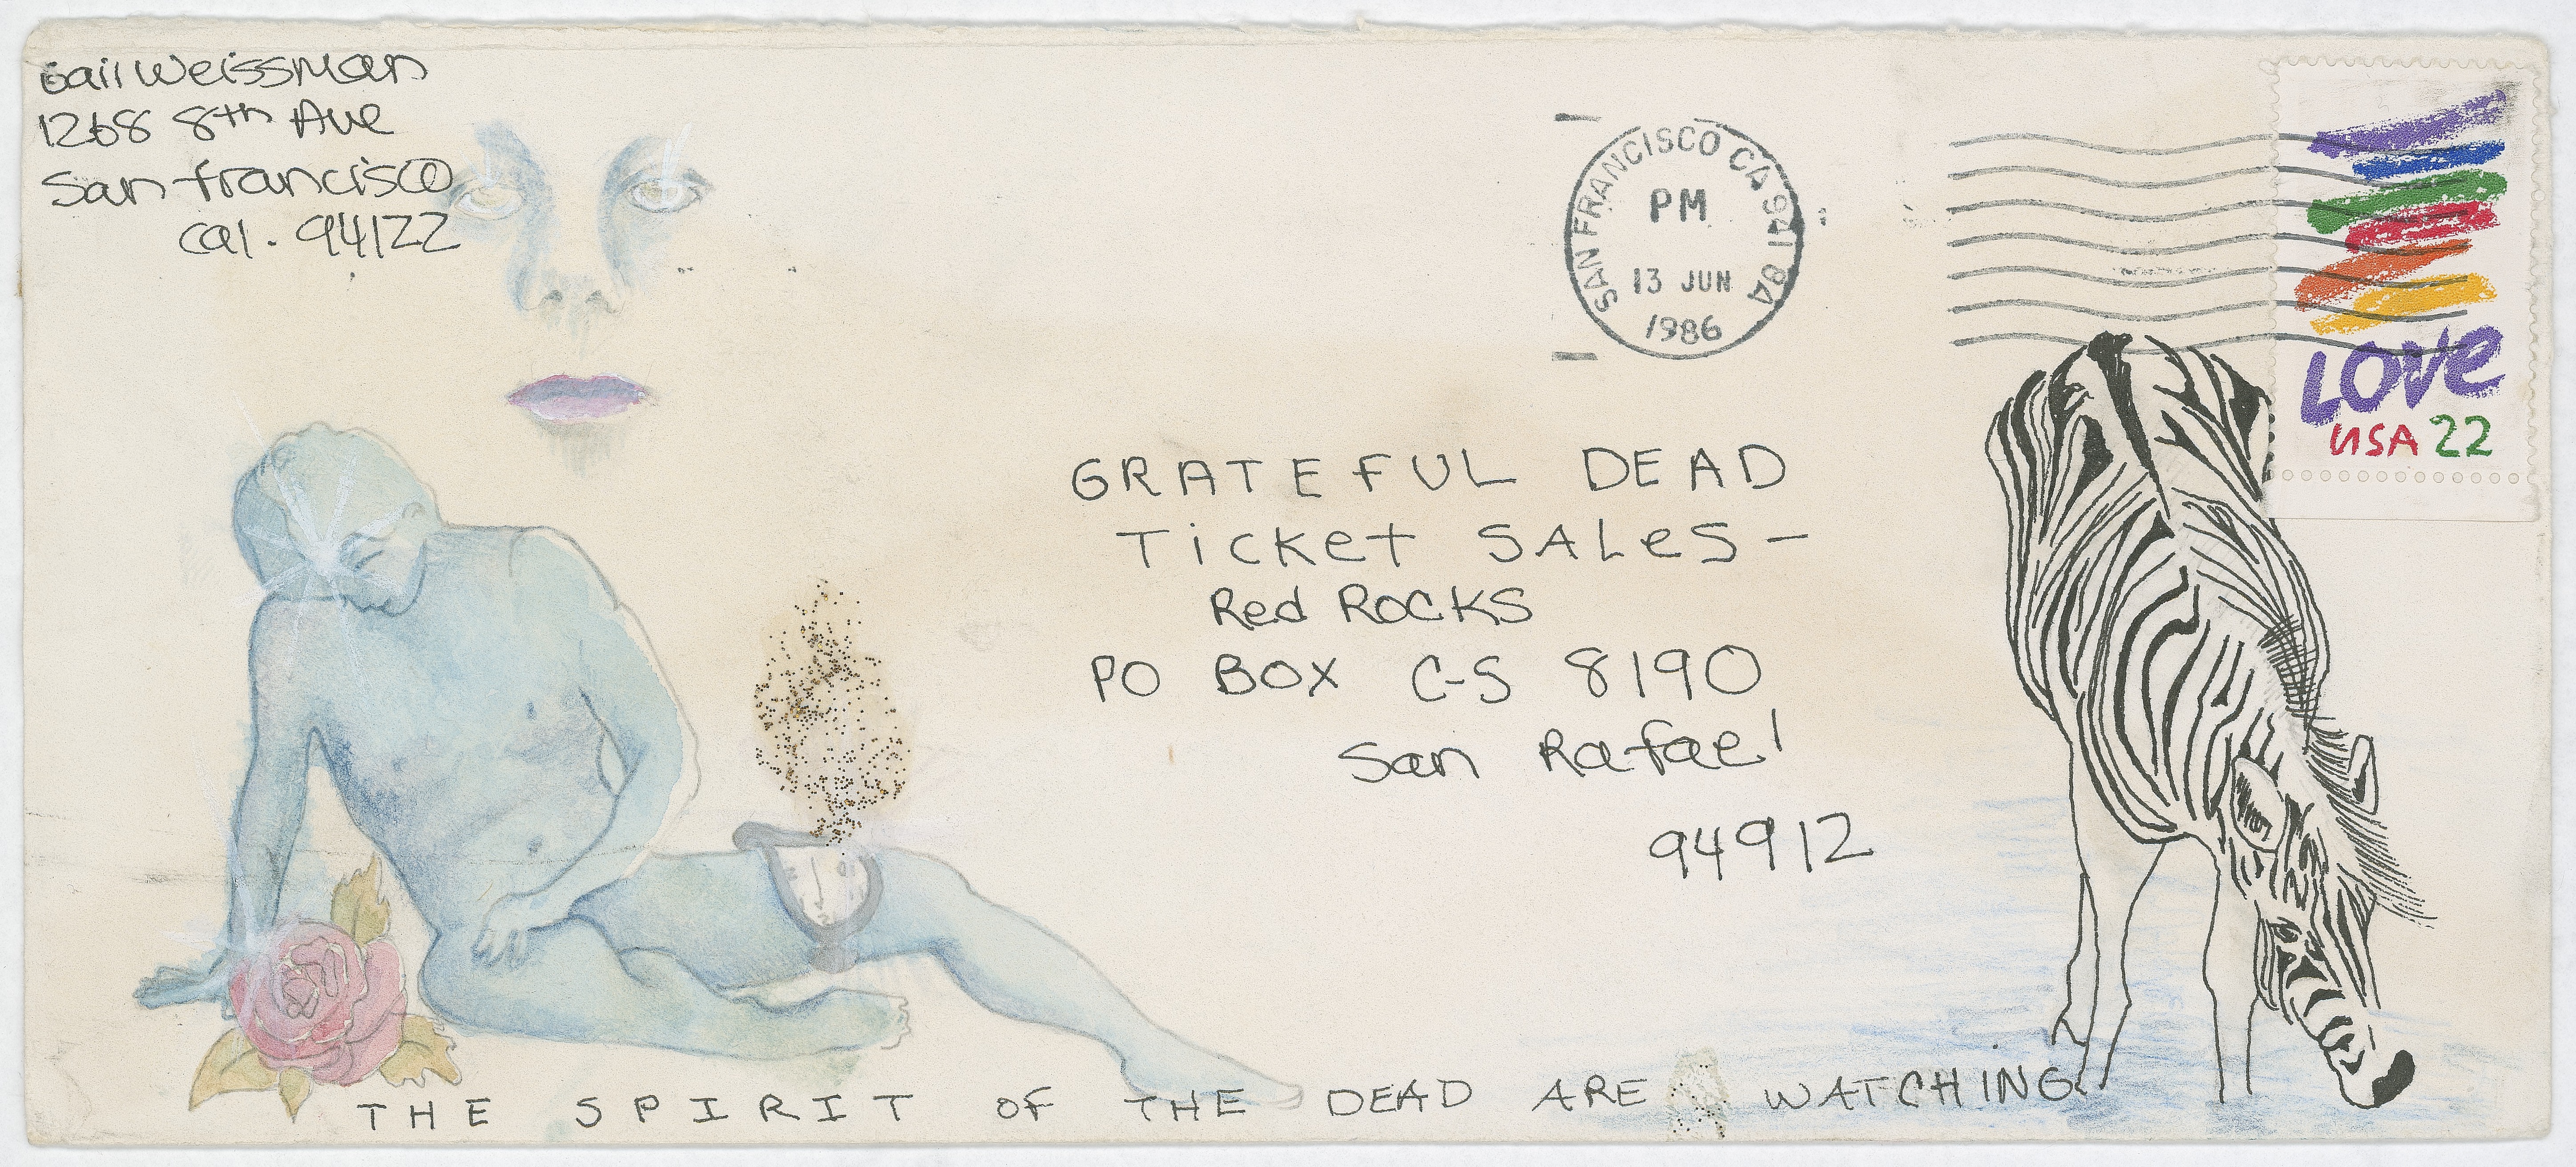 Gail Weissman
1268 8th Ave
San francisco
Cal. 94122
SAN FRANCISCO CA 941
PM
13 JUN
1986
LOVE
USA 22
GRATEFUL DEAD
TicKet SALeS -
Red ROCKS
PO BOX C-S 8190
San Rafael
94912
THE SPIRIT OF THE DEAD ARE WATCHING